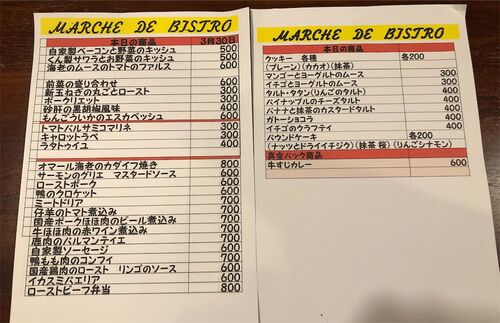 MARCHE DE BISTRO
本日の商品 3月30日
自家製ベーコンと野菜のキッシュ 500
くん製サワラとお野菜のキッシュ 500
海老のムースのトマトのファルス 600
前菜の盛り合わせ 600
新玉ねぎの丸ごとロースト 300
ポークリエット 300
砂肝の黒胡椒風味 400
もんごういかのエスカベッシュ 600
トマトバルサミコマリネ 300
キャロットラペ 300
ラタトゥイユ 400
オマール海老のカダイフ焼き 800
サーモンのグリエ マスタードソース 600
ローストポーク 600
鴨のクロケット 600
ミートドリア 700
仔羊のトマト煮込み 700
国産ポークほほ肉のビール煮込み 700
牛ほほ肉の赤ワイン煮込み 700
鹿肉のパルマンティエ 700
自家製ソーセージ 600
鴨もも肉のコンフィ 700
国産鶏肉のロースト リンゴのソース 600
イカスミパエリア 600
ローストビーフ弁当 800
MARCHE DE BISTRO
本日の商品
クッキー 各種 各200
(プレーン)(カカオ)(抹茶)
マンゴーとヨーグルトのムース 300
イチゴとヨーグルトのムース 300
タルト・タタン(りんごのタルト) 400
パイナップルのチーズタルト 400
バナナと抹茶のカスタードタルト 400
ガトーショコラ 400
イチゴのクラフティ 400
パウンドケーキ 各200
(ナッツとドライイチジク)(抹茶 桜)(りんごシナモン)
真空パック商品
牛すじカレー 600